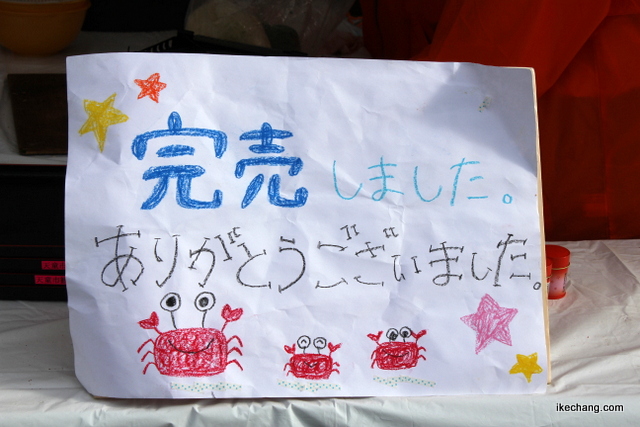 完売しました。
ありがとうございました。
ikechang.com